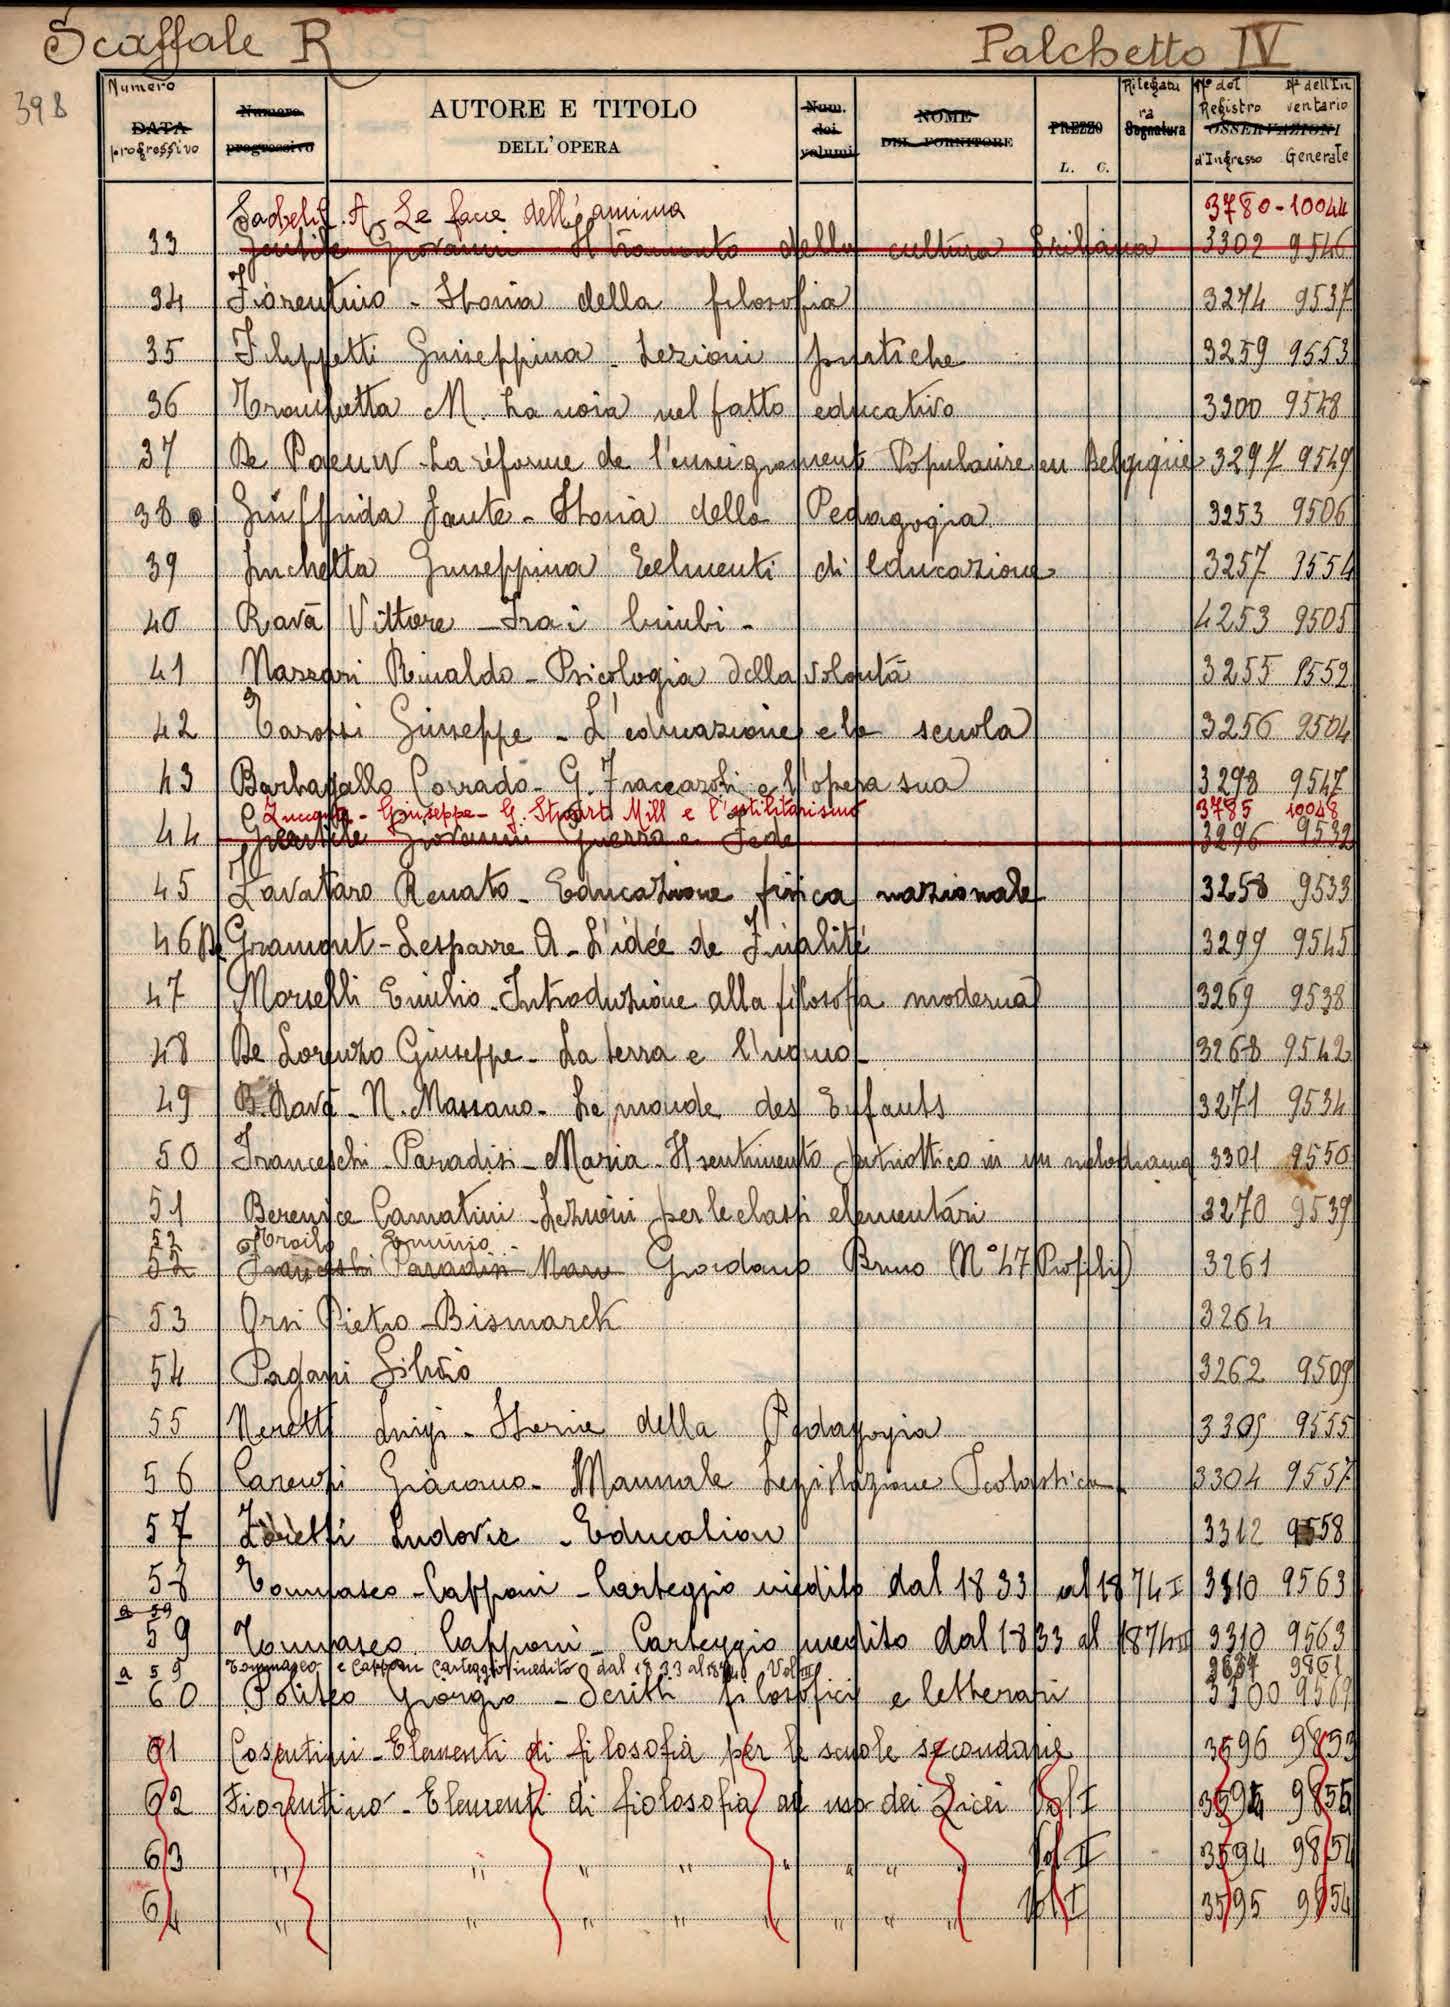 Scaffale R Palchetto IV
398
Numero DATA progressivo Numero progressivo AUTORE E TITOLO DELL'OPERA Num. dei volumi NOME DEL FORNITORE PREZZO L. C. Rilegatura Segnatura Nº del Registro d'Ingresso OSSERVAZIONI Nº dell'Inventario Generale
A. Le facce dell'anima 3780-10044
33 Gentile Giovanni Il tramonto della cultura Siciliana 3302 9546
34 Fiorentino - Storia della filosofia 3274 9537
35 Filippetti Guiseppina - Lezioni pratiche 3259 9553
36 M. La noia nel fatto educativo 3300 9548
37 De Paeuw - La réforme de l'enseignement Populaire en Belgique 3297 9549
38 Giuffrida Sante - Storia della Pedagogia 3253 9506
39 Giuseppina Eelmenti di educazione 3257 9554
40 Ravà Vittore - Fra i bimbi - 4253 9505
41 Nazzari Rinaldo - Psicologia della volontà 3255 9552
42 Tarozzi Giuseppe - L'educazione e la scuola 3256 9504
43 Barbagallo Corrado - G. Fraccaroli e l'opera sua 3298 9547
Zuccante - Giuseppe - G. Stuart Mill e l'utilitarismo 3785 10048
44 Gentile Giovanni Guerra e Fede 3296 9532
45 Zavattaro Renato - Educazione fisica nazionale 3258 9533
46 De Gramont - Lesparre A - L'idée de Finalité 3299 9545
47 Morselli Emilio - Introduzione alla filosofia moderna 3269 9538
48 De Lorenzo Giuseppe - La terra e l'uomo - 3268 9542
49 B. Ravà - N. Massano - Le monde des Enfants 3271 9534
50 Franceschi - Paradisi - Maria - Il sentimento patriottico in un melodramma 3301 9550
51 Berenice Camatini - Lezioni per le classi elementari 3270 9539
52 Troilo Erminio -
52 Franceschi Paradisi Maria Giordano Bruno (Nº 47 Profili) 3261
53 Orsi Pietro - Bismarck 3264
54 Pagani Silvio 3262 9509
55 Neretti Luigi - Storia della Pedagogia 3305 9555
56 Giacomo - Manuale Legislazione Scolastica - 3304 9557
57 Zoretti Ludovic - Education 3312 9558
58 Tommaseo - Capponi - Carteggio inedito dal 1833 al 1874 I 3310 9563
a 59
59 Tommaseo Capponi - Carteggio inedito dal 1833 al 1874 II 3310 9563
a 59 Tommaseo e Capponi Carteggio inedito dal 1833 al 1874 Vol III 9861
60 Politeo Giorgio - Scritti filosofici e letterari 3300 9569
61 Cosentini - Elementi di filosofia per le scuole secondarie 3596 9853
62 Fiorentino - Elementi di fiolosofia ad uso dei Licei Vol I 3594 9855
63 " " " " " " " " Vol II 3594 9854
64 " " " " " " " " Vol I 3595 9854